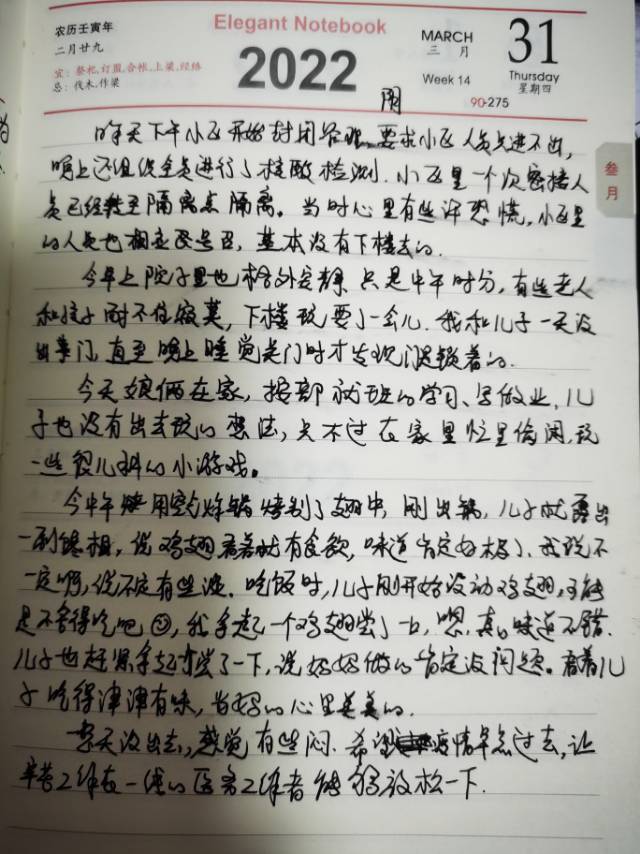 农历壬寅年
二月廿九
宜：祭祀,订盟,合帐,上梁,经络
忌：伐木,作梁
Elegant Notebook
2022
MARCH
三 月
Week 14
31
Thursday
星期四
90-275
叁月
阴
昨天下午小区开始封闭管理，要求小区人员只进不出，
晚上还组织全员进行了核酸检测.小区里一个次密接人
员已经转至隔离点隔离。当时心里有些许恐慌,小区里
的人员也相应号召，基本没有下楼去的.
今早上院子里也格外安静 只是中午时分，有些老人
和孩子耐不住寂寞，下楼玩耍了一会儿.我和儿子一天没
出家门,直至晚上睡觉关门时才发现门是锁着的.
今天娘俩在家，按部就班的学习、写做业.儿
子也没有出去玩的想法，只不过在家里忙里偷闲,玩
一些很儿科的小游戏。
今中午用空气炸锅烤制了翅中,刚出锅,儿子就露出
一副馋相，说鸡翅看着就有食欲，味道肯定好极了.我说不
一定啊,说不定有些淡.吃饭时,儿子刚开始没动鸡翅,可能
是不舍得吃吧,我拿起一个鸡翅尝了一口,嗯,真的味道不错.
儿子也赶紧拿起尝了一下,说妈妈做的肯定没问题。看着儿
子吃得津津有味，当妈的心里美美的.
一天没出去,感觉有些闷.希望疫情早点过去,让
辛苦工作在一线的医务工作者能够放松一下.